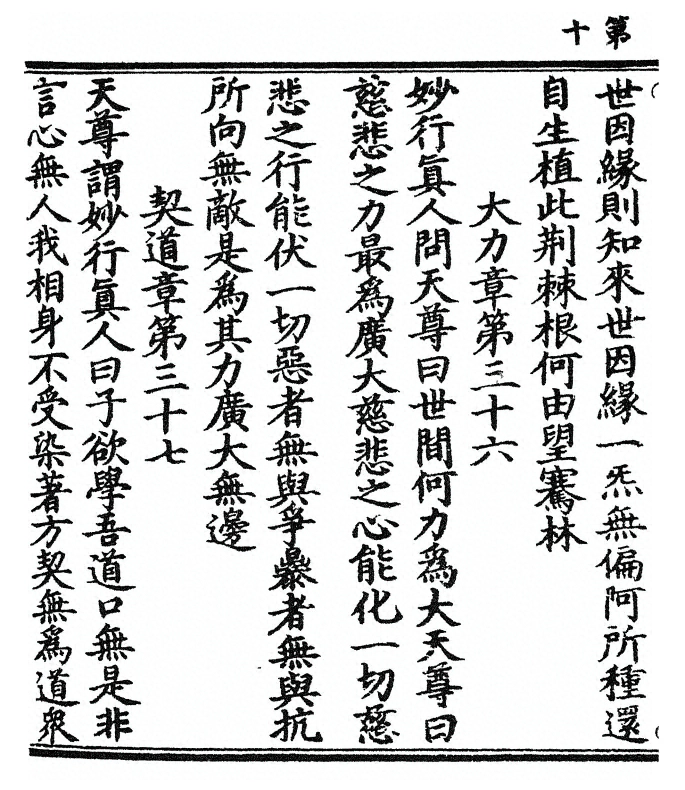 第十
世因緣則知來世因緣一炁無偏阿所種還
自生植此荆棘根何由望騫林
大力章第三十六
妙行眞人問天尊曰世間何力爲大天尊曰
慈悲之力最爲廣大慈悲之心能化一切慈
悲之行能伏一切惡者無與爭暴者無與抗
所向無敵是爲其力廣大無邊
契道章第三十七
天尊謂妙行眞人曰子欲學吾道口無是非
言心無人我相身不受染著方契無爲道衆